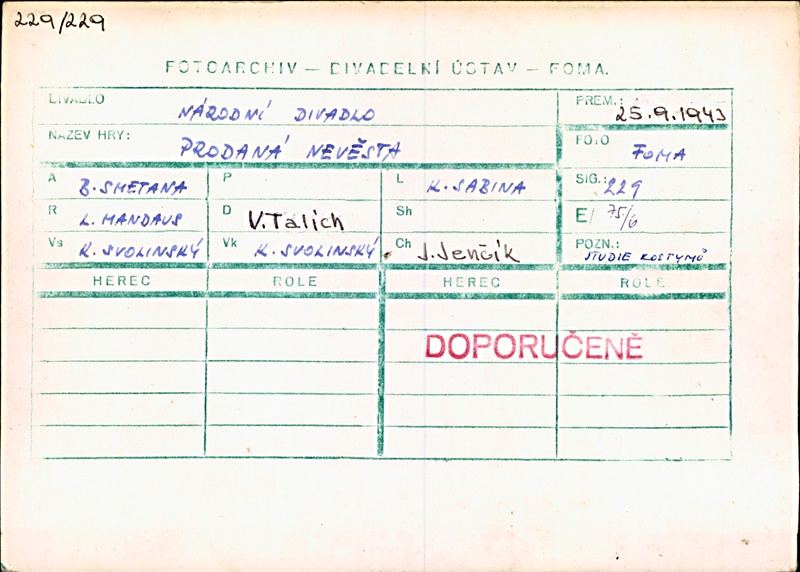 229/229
FOTOARCHIV — DIVADELNÍ ÚSTAV — FOMA.
DIVADLO NÁRODNÍ DIVADLO PREM.: 25.9.1943
NÁZEV HRY: PRODANÁ NEVĚSTA FOTO FOMA
A B. SMETANA P L K. SABINA SIG.: 229
R L. MANDAUS D V. Talich Sh E/ 75/6
Vs K. SVOLINSKÝ Vk K. SVOLINSKÝ Ch J. Jenčík POZN.: STUDIE KOSTYMŮ
HEREC ROLE HEREC ROLE
DOPORUČENĚ